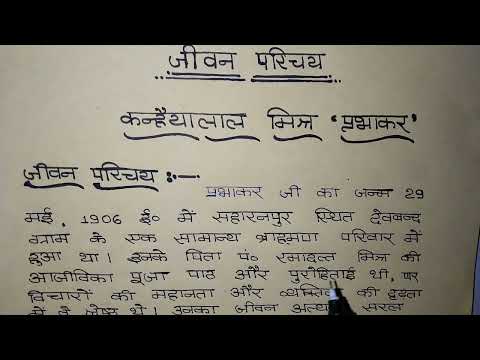 जीवन परिचय
कन्हैयालाल मिश्र 'प्रभाकर'
जीवन परिचय :-
प्रभाकर जी का जन्म 29
मई, 1906 ई० में सहारनपुर स्थित देवबन्द
ग्राम के एक सामान्य ब्राह्मण परिवार में
हुआ था। इनके पिता पं० रमादत्त मिश्र की
आजीविका पूजा पाठ और पुरोहिताई थी, पर
विचारों की महानता और की दृढ़ता
में वे श्रेष्ठ थे। उनका जीवन सरल